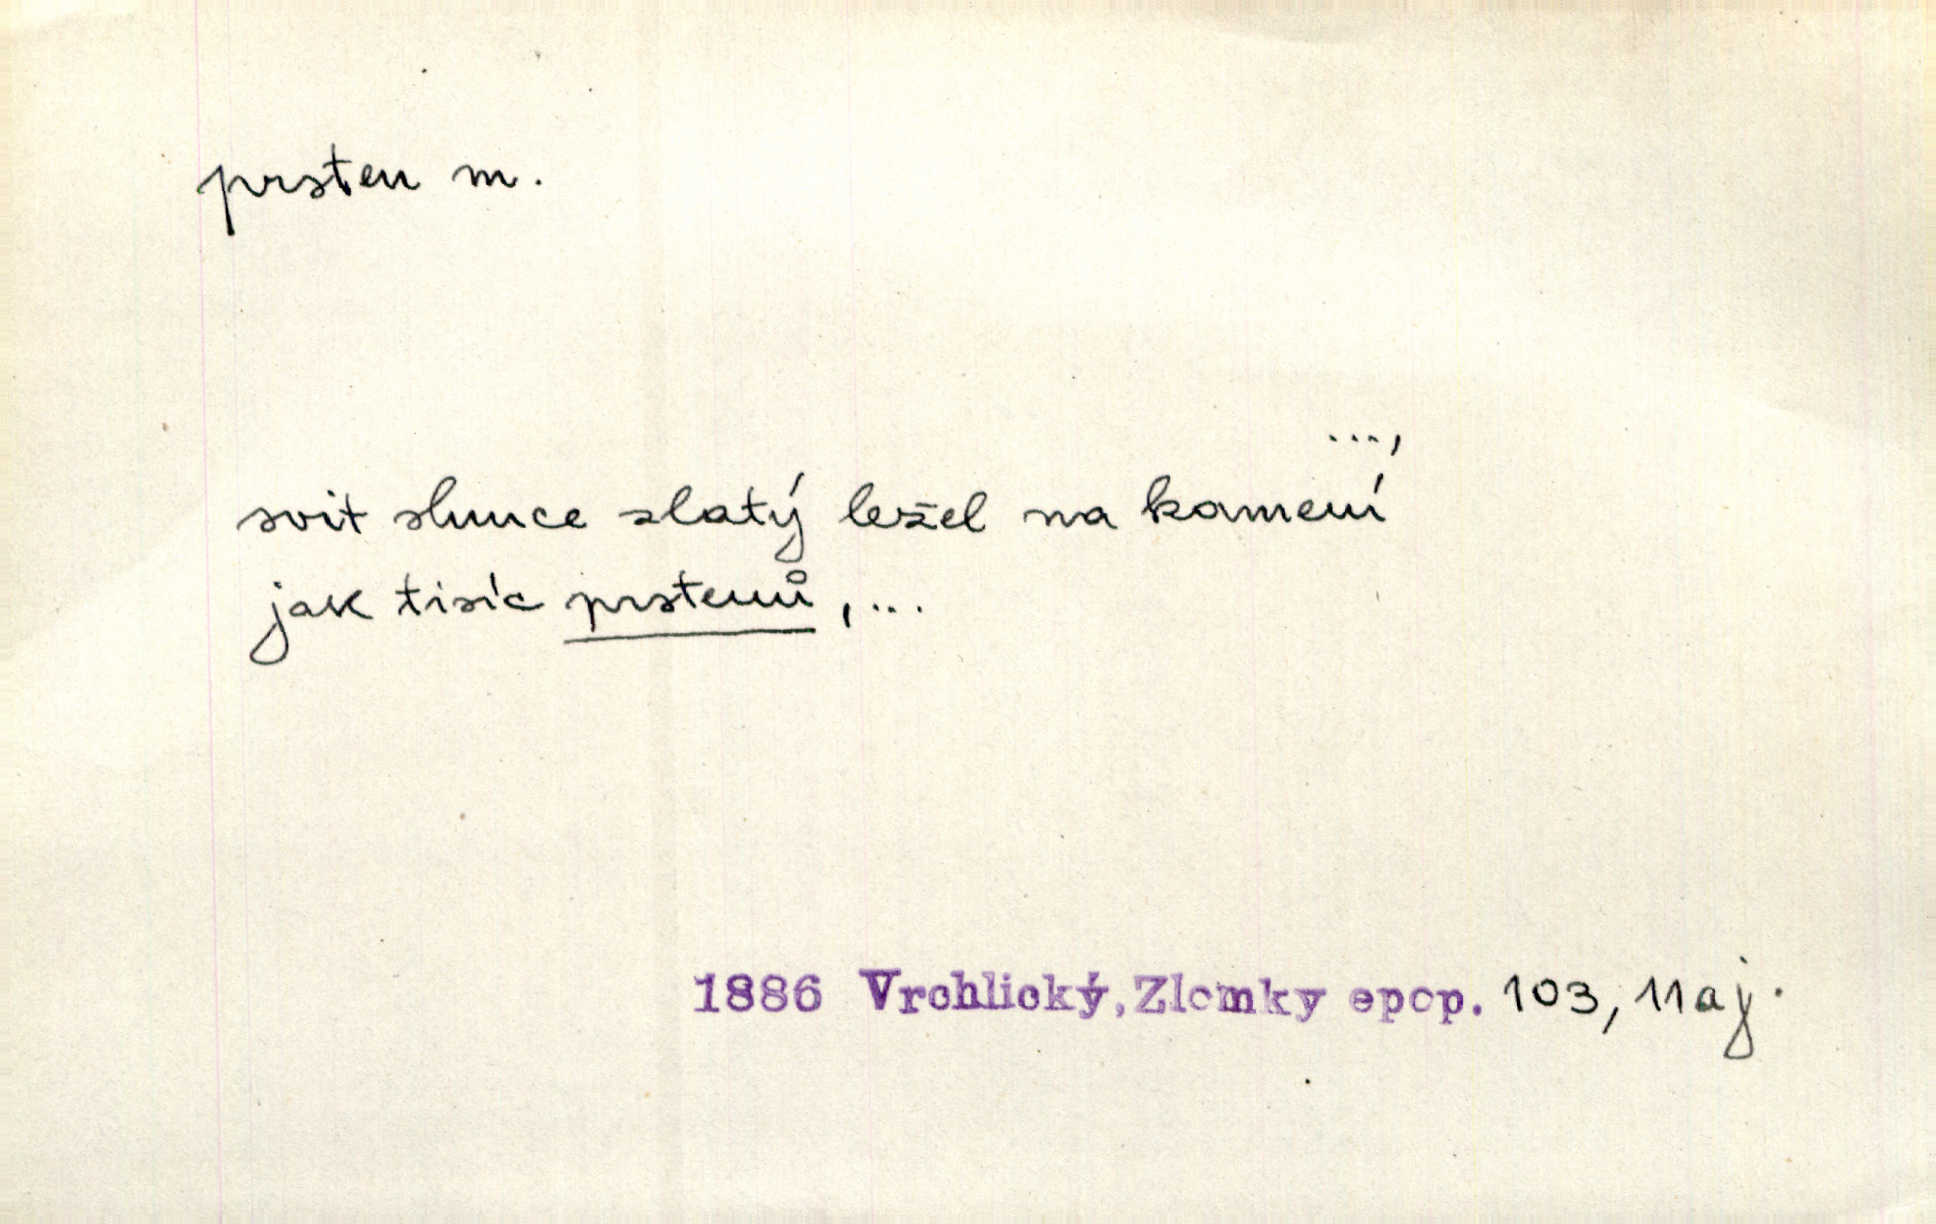 prsten m.
...,
svit slunce zlatý ležel na kamení
jak tisíc prstenů, ...
1886 Vrchlický, Zlomky epop. 103, 11 aj.